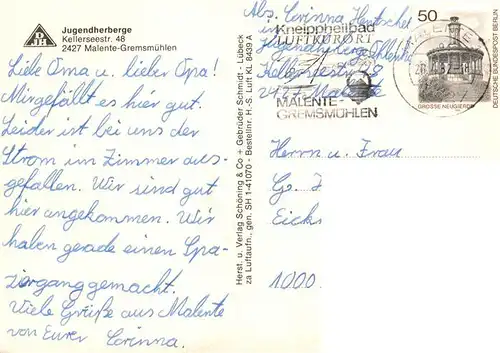 Jugendherberge
Kellerseestr. 48
2427 Malente-Gremsmühlen
Liebe Oma u. lieber Opa!
Mir gefällt es hier gut.
Leider ist bei uns der
Strom im Zimmer aus-
gefallen. Wir sind gut
hier angekommen. Wir
haben gerade einen Spa-
ziergang gemacht.
Viele Grüße aus Malente
von Eurer Corinna.
Herst. u. Verlag Schöning & Co + Gebrüder Schmidt - Lübeck
za Luftaufn., gen. SH 1-41070 - Bestellnr. H.-S. Luft KL 8439 A
Abs. Corinna
Jugendherberge
2427 Malente
Kneippheilbad
LUFTKURORT
MALENTE-
GREMSMÜHLEN
MALENTE
50
DEUTSCHE BUNDESPOST BERLIN
GROSSE NEUGIERDE
Herrn u. Frau
Eick
1000.